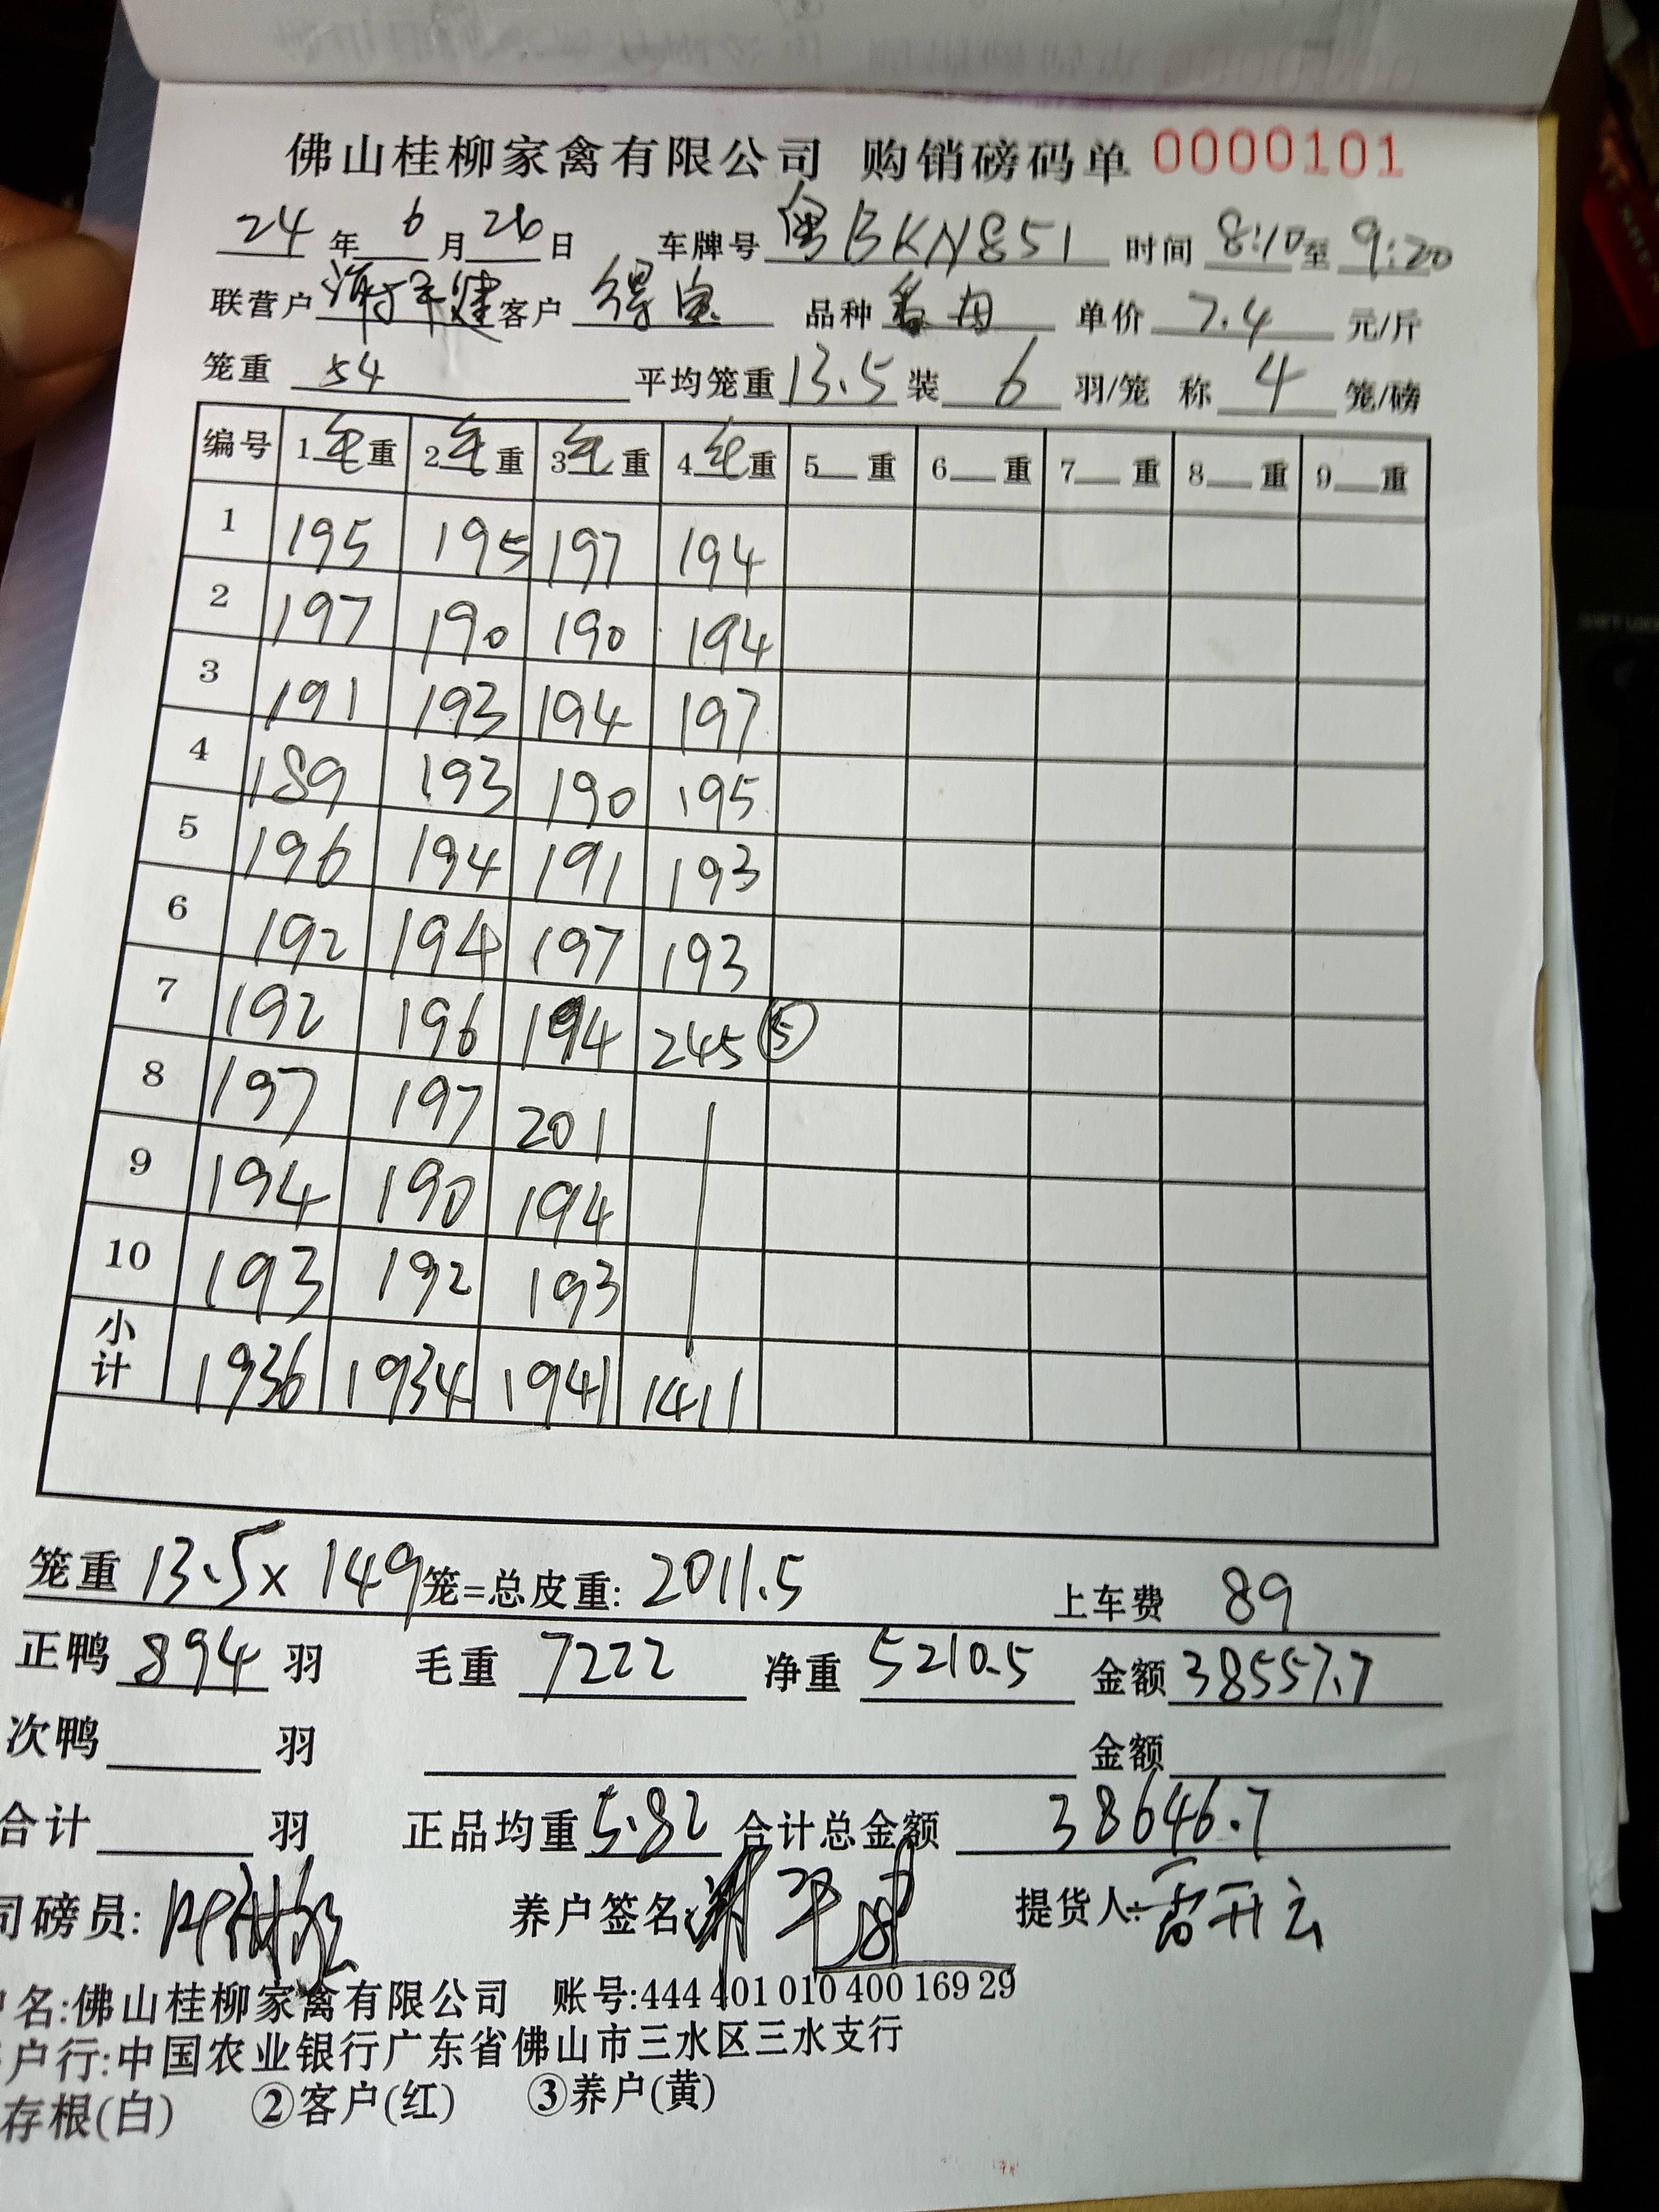 佛山桂柳家禽有限公司 购销磅码单 0000101
24 年 6 月 26 日 车牌号 粤BKN851 时间 8:10 至 9:20
联营户 谢平健 客户 得宝 品种 番母 单价 7.4 元/斤
笼重 54 平均笼重 13.5 装 6 羽/笼 称 4 笼/磅
编号 1毛重 2毛重 3毛重 4毛重 5 重 6 重 7 重 8 重 9 重
1 195 195 197 194
2 197 190 190 194
3 191 193 194 197
4 189 193 190 195
5 196 194 191 193
6 192 194 197 193
7 192 196 194 245 ⑤
8 197 197 201
9 194 190 194
10 193 192 193
小计 1936 1934 1941 1411
笼重 13.5 x 149 笼=总皮重: 2011.5 上车费 89
正鸭 894 羽 毛重 7222 净重 5210.5 金额 38557.7
次鸭 羽 金额
合计 羽 正品均重 5.82 合计总金额 38646.7
司磅员: 养户签名: 谢平健 提货人: 雷开云
户名:佛山桂柳家禽有限公司 账号:444 401 010 400 169 29
户行:中国农业银行广东省佛山市三水区三水支行
存根(白) ②客户(红) ③养户(黄)